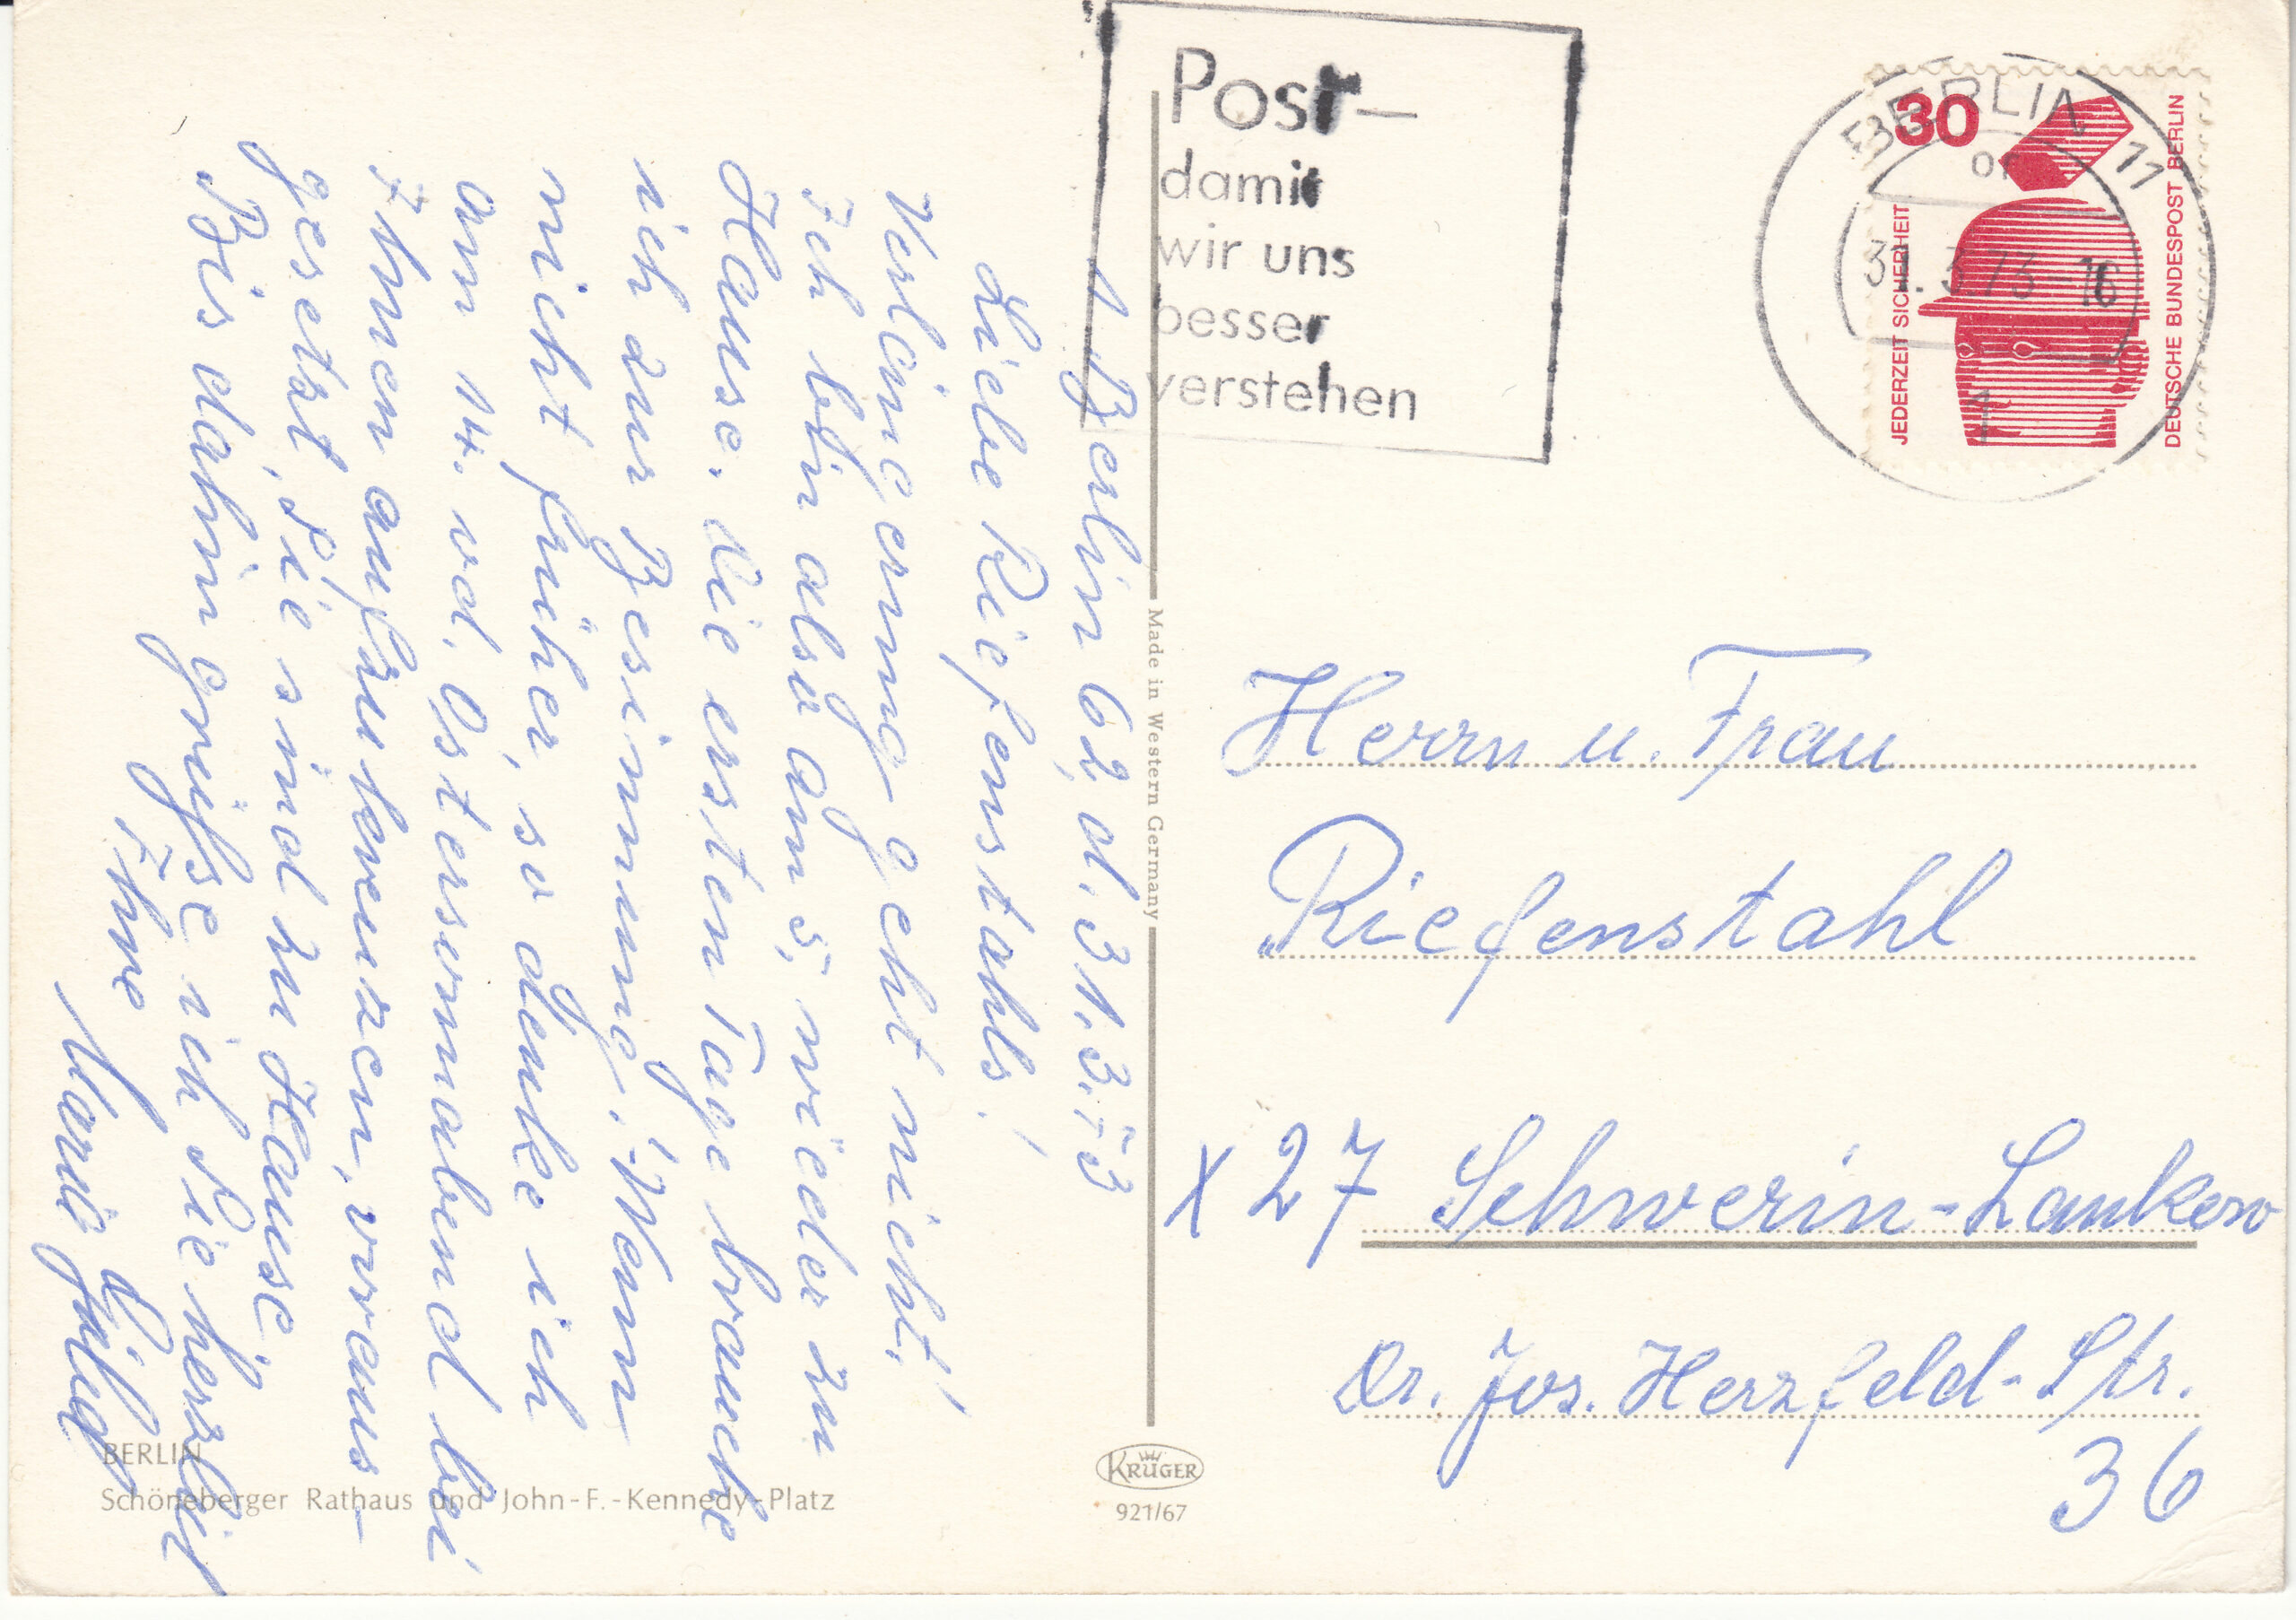 1 Berlin 62, d. 31.3.73
Liebe Riefenstahls!
Verlängerung geht nicht!
Ich bin also am 5. wieder zu
Hause. Die ersten Tage brauche
ich zur Besinnung. Wenn
nicht früher, so denke ich
am 14. od. Ostersonnabend bei
Ihnen aufzukreuzen, voraus-
gesetzt, Sie sind zu Hause.
Bis dahin grüße ich Sie herzlich
Ihre
BERLIN
Schöneberger Rathaus und John-F.-Kennedy-Platz
Made in Western Germany
KRÜGER
921/67
Post-
damit
wir uns
besser
verstehen
BERLIN 11
31.3.73 16
30
JEDERZEIT SICHERHEIT
DEUTSCHE BUNDESPOST BERLIN
Herrn u. Frau
Riefenstahl
X 27 Schwerin-Lankow
Dr. Jos. Herzfeld-Str.
36